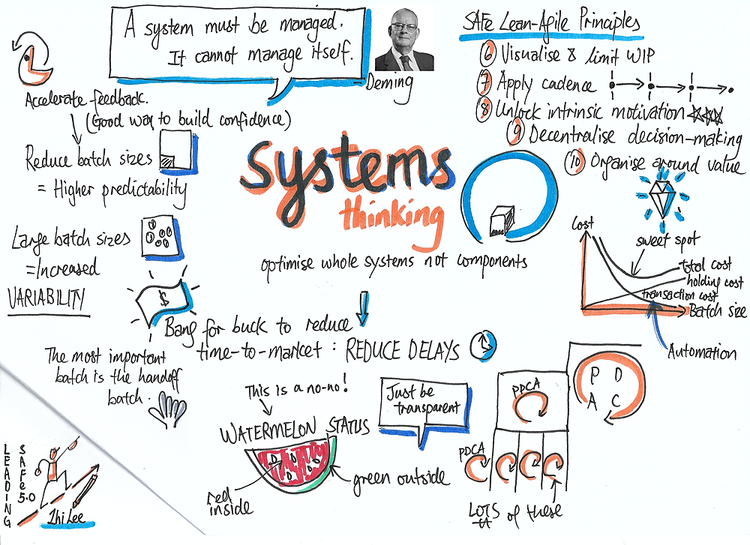 A system must be managed.
It cannot manage itself.
Deming
SAFe Lean-Agile Principles
6 Visualise & limit WIP
7 Apply cadence
8 Unlock intrinsic motivation
9 Decentralise decision-making
10 Organise around value
Accelerate feedback.
(Good way to build confidence)
Reduce batch sizes
= Higher predictability
Large batch sizes
= Increased
VARIABILITY
$
Systems
thinking
optimise whole systems not components
Bang for buck to reduce
time-to-market : REDUCE DELAYS
The most important
batch is the handoff
batch.
Cost
sweet spot
total cost
holding cost
transaction cost
Batch size
Automation
This is a no-no!
WATERMELON STATUS
red
inside
green outside
Just be
transparent
PDCA
PDCA
P D
A C
LOTS of these
LEADING
SAFe 5.0
Zhi Lee